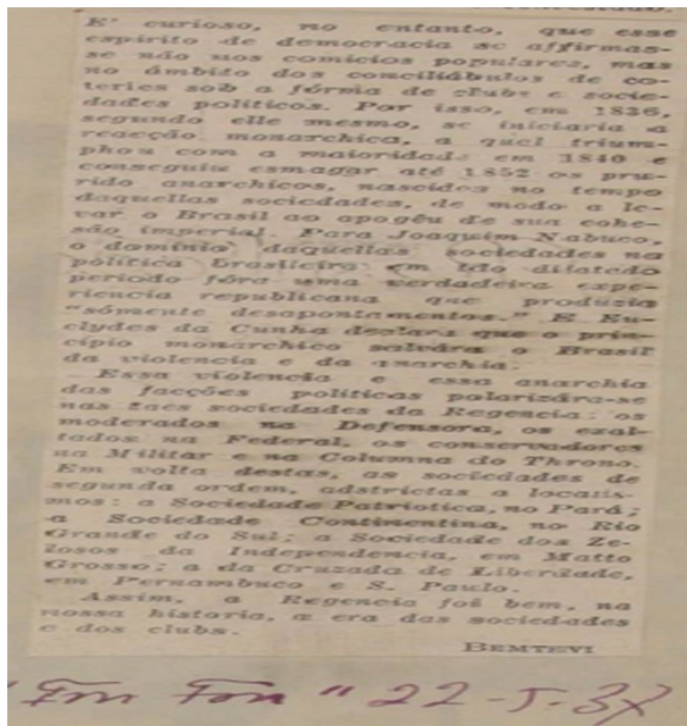 E' curioso, no entanto, que esse
espirito de democracia se affirmas-
se não nos comicios populares, mas
no âmbito dos conciliábulos de co-
teries sob a fórma de clubs e socie-
dades politicos. Por isso, em 1836,
segundo elle mesmo, se iniciaria a
reacção monarchica, a qual trium-
phou com a maioridade em 1840 e
conseguiu esmagar até 1852 os pru-
rido anarchicos, nascidos no tempo
daquellas sociedades, de modo a le-
var o Brasil ao apogêu de sua cohe-
são imperial. Para Joaquim Nabuco,
o dominio daquellas sociedades na
politica brasileira em tão dilatado
periodo fôra uma verdadeira expe-
riencia republicana que produzia
"sómente desapontamentos." E Eu-
clydes da Cunha declara que o prin-
cipio monarchico salvára o Brasil
da violencia e da anarchia.
Essa violencia e essa anarchia
das facções politicas polarizára-se
nas taes sociedades da Regencia: os
moderados na Defensora, os exal-
tados na Federal, os conservadores
na Militar e na Columna do Throno.
Em volta destas, as sociedades de
segunda ordem, adstrictas a localis-
mos: a Sociedade Patriotica, no Pará;
a Sociedade Continentina, no Rio
Grande do Sul; a Sociedade dos Ze-
losos da Independencia, em Matto
Grosso; a da Cruzada de Liberdade,
em Pernambuco e S. Paulo.
Assim, a Regencia foi bem, na
nossa historia, a era das sociedades
e dos clubs.
BEMTEVI
"Fon Fon" 22-5-37